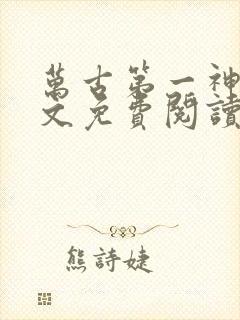 萬古第一神
文免費閱讀
熊詩婕